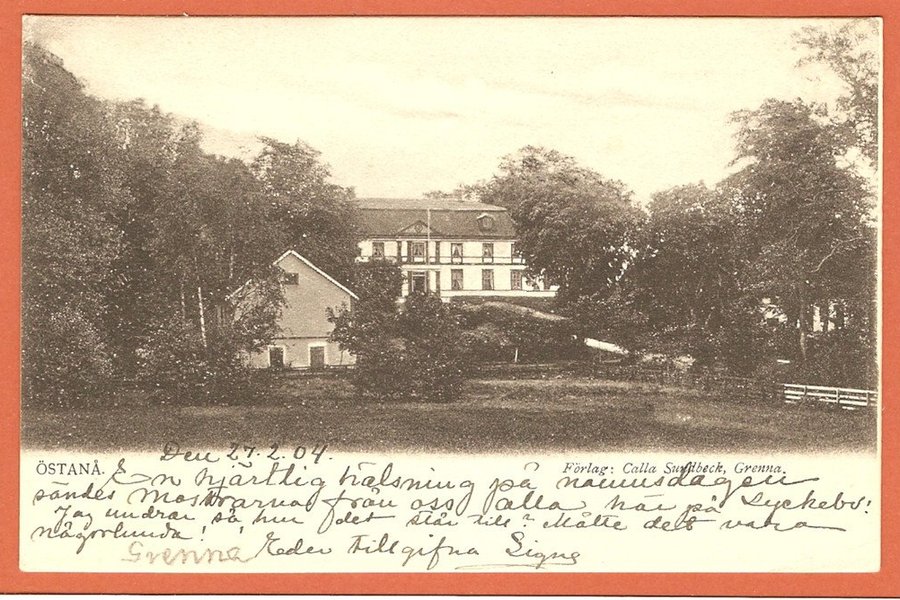 Den 27.2.04.
ÖSTANÅ.
Förlag: Calla Sundbeck, Grenna.
En hjärtlig hälsning på namnsdagen
sändes Mostrarna från oss alla här på Lyckebo!
Jag undrar så, hur det står till? Måtte det vara
någorlunda!
Eder tillgifna Signe
Grenna